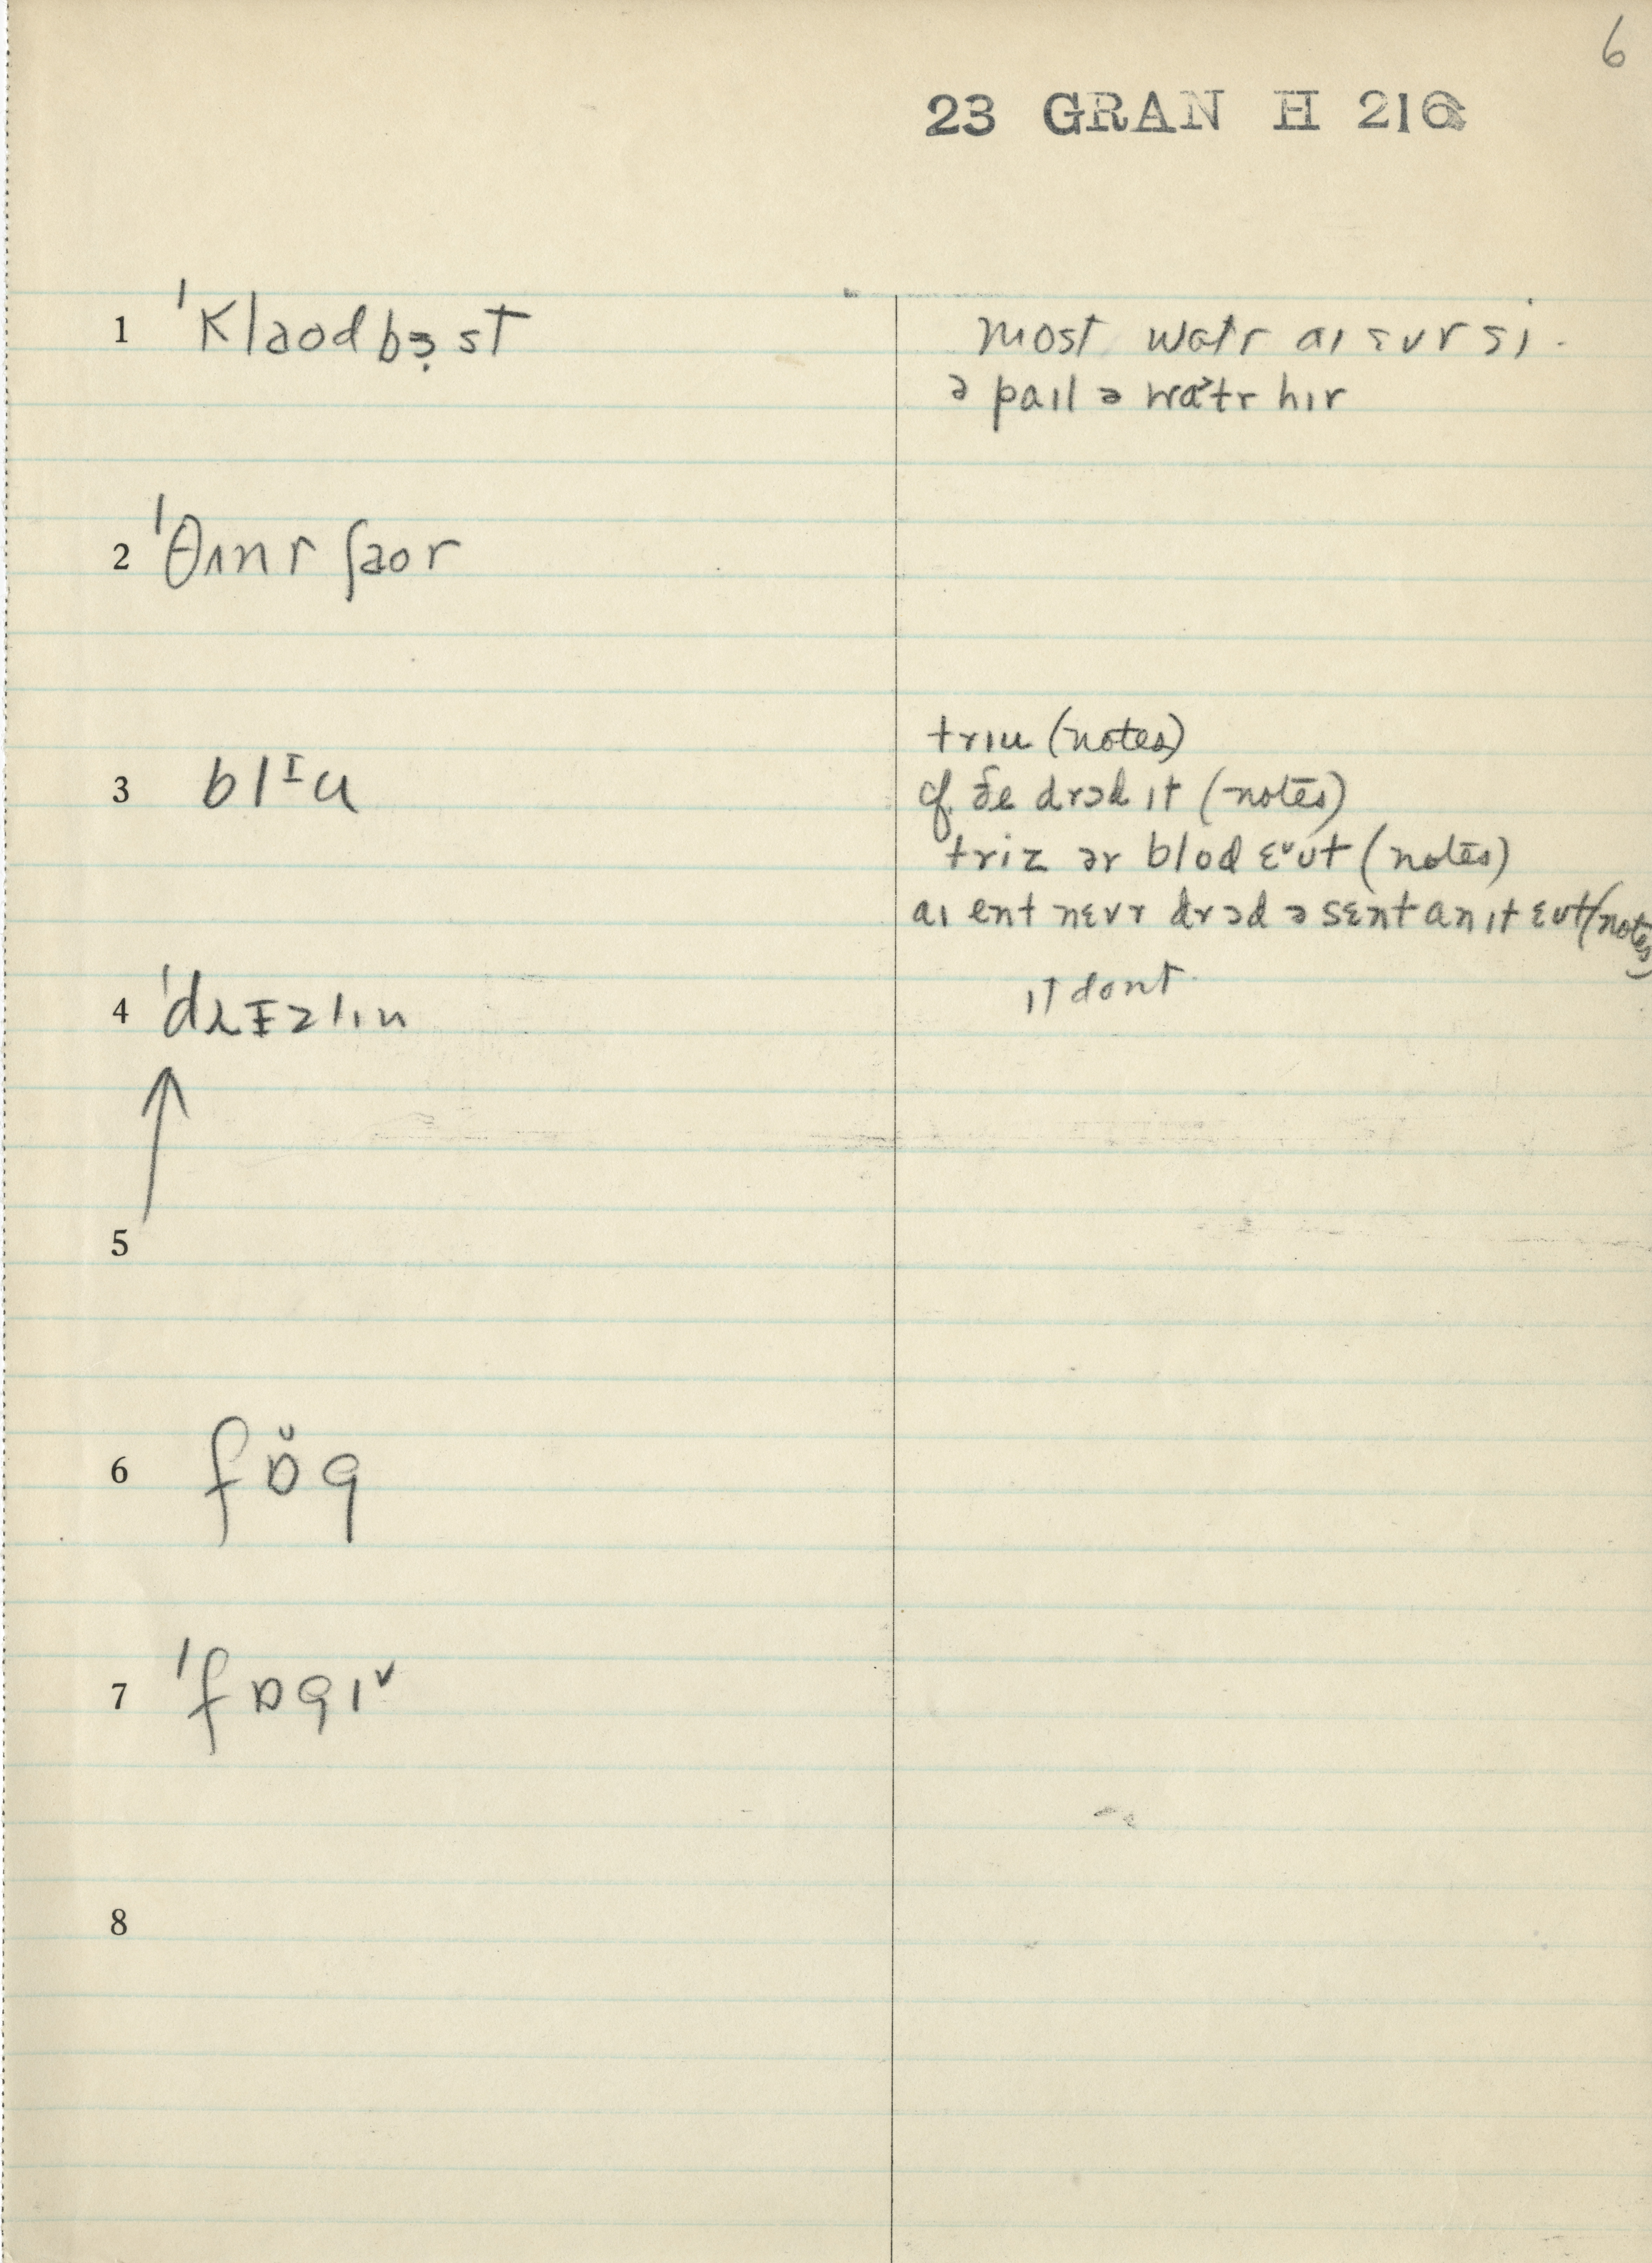 6
23 GRAN H 216
1 ˈklaodbɜ̣st
most watr aɪ ɛvr si.
ə paɪl ə watr hɪr
2 ˈθʌnr ʃaor
3 blᴵu
trɪu (notes)
cf. ðe drɔd ɪt (notes)
triz ər blod ɛᵛʊt (notes)
aɪ ent nɛvr drɔd ə sɛnt an ɪt ɛʊt (notes)
4 ˈdɹɪzlɪn
ɪt dont
5
6 fɒ̆g
7 ˈfɒgɪˇ
8